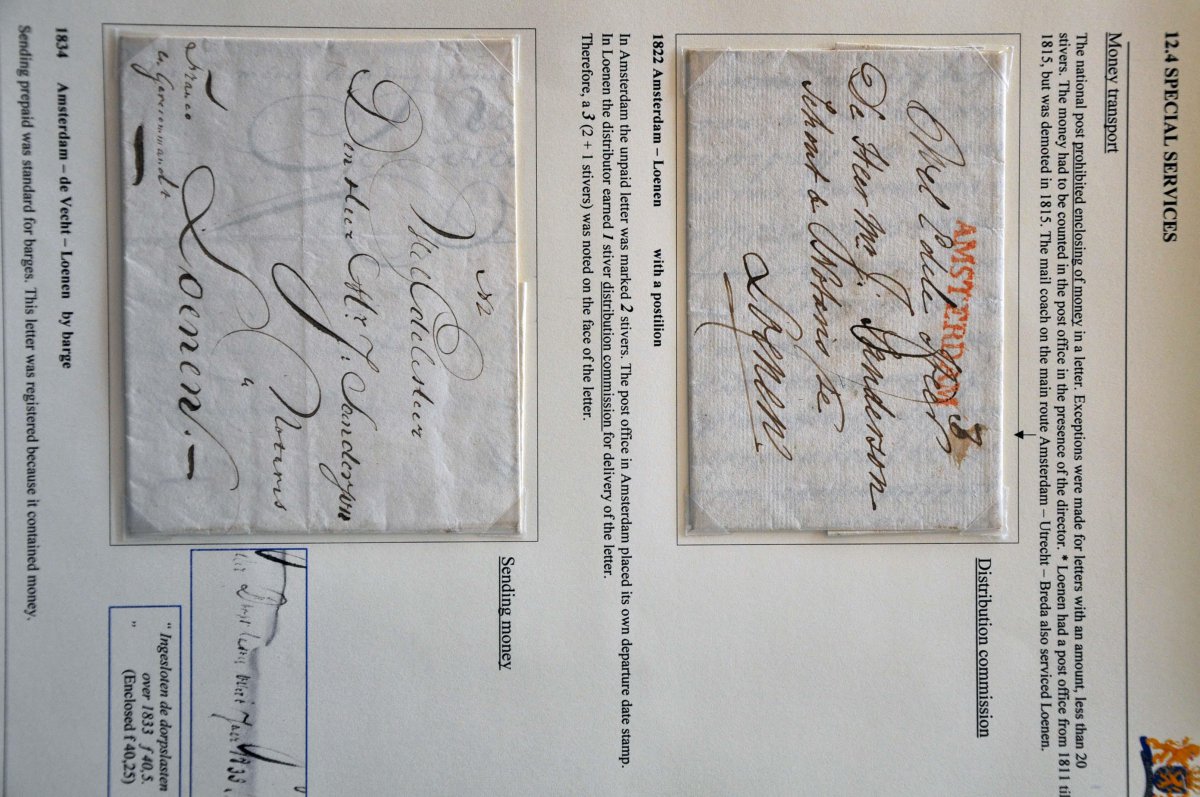 12.4 SPECIAL SERVICES
Money transport
The national post prohibited enclosing of money in a letter. Exceptions were made for letters with an amount, less than 20
stivers. The money had to be counted in the post office in the presence of the director. * Loenen had a post office from 1811 til
1815, but was demoted in 1815. The mail coach on the main route Amsterdam – Utrecht – Breda also serviced Loenen.
Distribution commission
AMSTERDAM
3
De Heer Mr. J. Sanderson
Loenen
1822 Amsterdam – Loenen with a postilion
In Amsterdam the unpaid letter was marked 2 stivers. The post office in Amsterdam placed its own departure date stamp.
In Loenen the distributor earned 1 stiver distribution commission for delivery of the letter.
Therefore, a 3 (2 + 1 stivers) was noted on the face of the letter.
Sending money
N2
Den Heer Mr J. Sanderson
Loenen.
Franco
" Ingesloten de dorpslasten
over 1833 f 40,5.
"
(Enclosed f 40,25)
1834 Amsterdam – de Vecht – Loenen by barge
Sending prepaid was standard for barges. This letter was registered because it contained money.